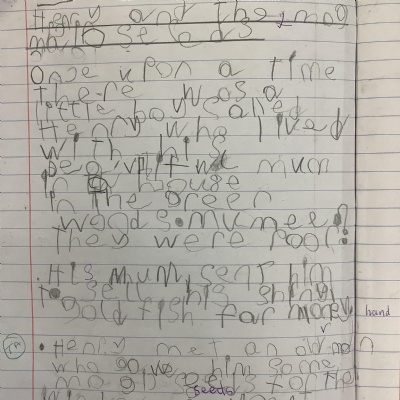 Henry and the mag
seeds
Once upon a time
there was a
little boy called
Henry who lived
with his
mum
in a house
in the green
woods.
They were Poor!
. His mum sent him
to sell his shiny
gold fish for money
hand
. Henry met an old man
who gave him some
seeds for the
seeds